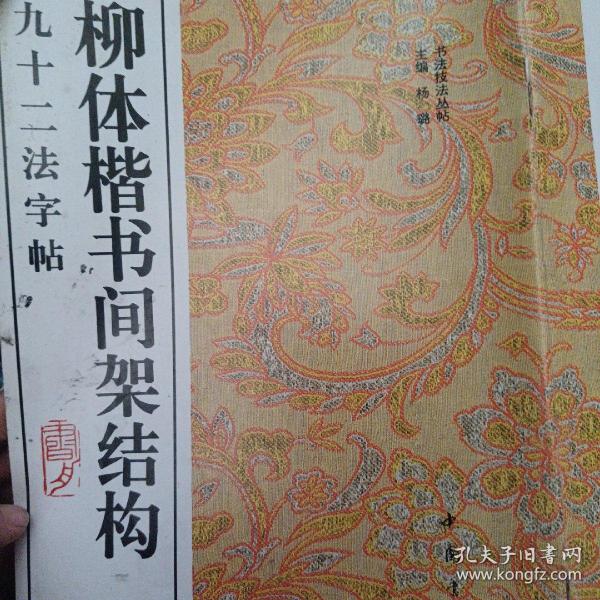 柳体楷书间架结构
九十二法字帖
书法技法丛帖
主编 杨璐
中国书
孔夫子旧书网
www.kongfz.com